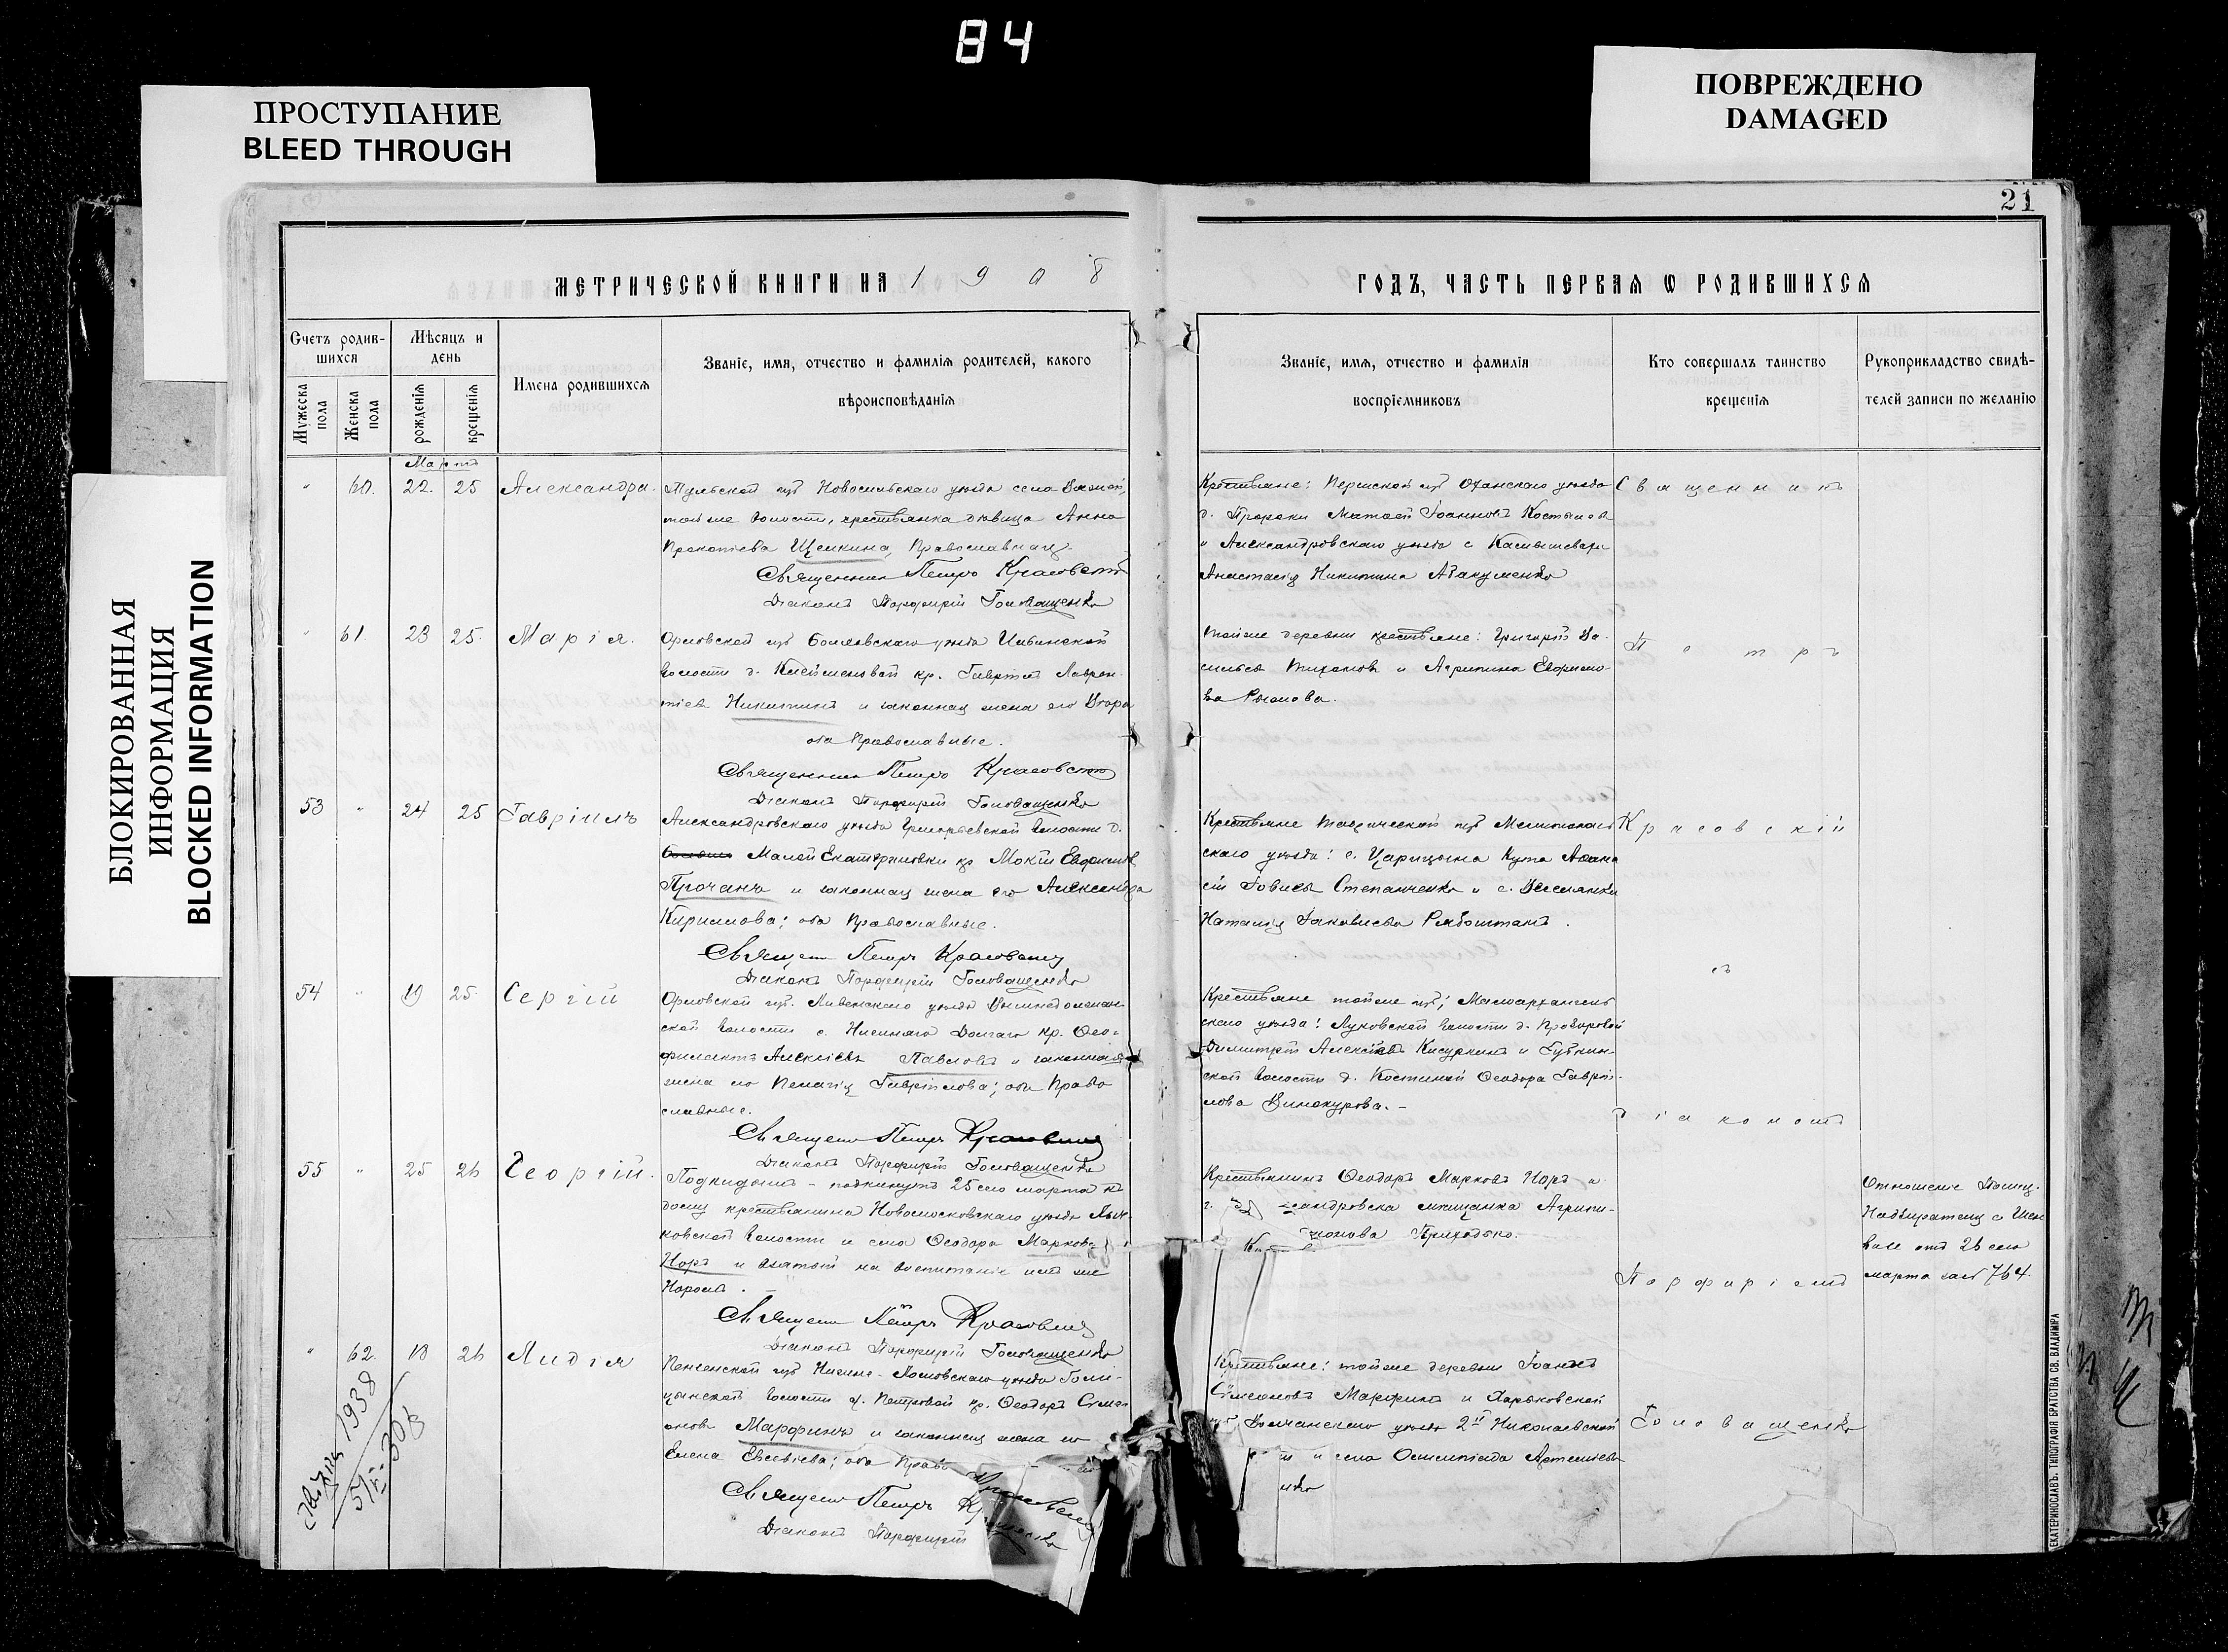 84
ПРОСТУПАНИЕ
BLEED THROUGH
ПОВРЕЖДЕНО
DAMAGED
БЛОКИРОВАННАЯ
ИНФОРМАЦИЯ
BLOCKED INFORMATION
21
МЕТРИЧЕСКОЙ КНИГИ НА 1908
ГОДЪ, ЧАСТЬ ПЕРВАЯ Ѡ РОДИВШИХСЯ
Счетъ родив-
шихся
Мужеска
пола
Женска
пола
Мѣсяцъ и
день
рожденія
крещенія
Имена родившихся
Званіе, имя, отчество и фамилія родителей, какого
вѣроисповѣданія
Званіе, имя, отчество и фамилія
воспріемниковъ
Кто совершалъ таинство
крещенія
Рукоприкладство свидѣ-
телей записи по желанію
Мартъ
" 60. 22. 25 Александра.
Тульской губ Новосильскаго уѣзда села
той же волости, крестьянка дѣвица Анна
Прокопіева Щелкина, Православная.
Священникъ Петръ Красовскій
Діаконъ Порфирій Головащенко
Крестьяне: Пермской губ Оханскаго уѣзда
д. Матѳей Іоанновъ
и Александровскаго уѣзда с.
Анастасія Никитина Авакуменко
" 61. 23 25. Марія.
Орловской губ Болховскаго уѣзда
волости д. кр. Гавріилъ Лаврен-
тіевъ Никитинъ и законная жена его
оба Православные.
Священникъ Петръ Красовскій
Діаконъ Порфирій Головащенко
Тойже деревни крестьяне: Григорій Ва-
сильевъ Тихоновъ и Агрипина Евфимо-
ва
53 " 24 25 Гавріилъ
Александровскаго уѣзда Григорьевской волости д.
Малой Екатериновки кр Мокій Евфимовъ
Прочанъ и законная жена его Александра
Кириллова; оба Православные.
Священникъ Петръ Красовскій
Діаконъ Порфирій Головащенко
Крестьяне Таврической губ Мелитополь-
скаго уѣзда: с. Царицына Кута Аѳана-
сій Степанченко и с. Веселянки
Наталія Іаковлева Рябоштанъ.
54 " 19 25. Сергій
Орловской губ. Ливенскаго уѣзда
ской волости с. Нижняго Долгаго кр. Ѳео-
филактъ Алексіевъ Павловъ и законная
жена его Пелагія Гавріилова; оба Право
славные.
Священникъ Петръ Красовскій
Діаконъ Порфирій Головащенко
Крестьяне тойже губ; Малоархангель
скаго уѣзда: Луковской волости д.
Димитрій Алексіевъ и
ской волости д. Костиной Ѳеодора Гаврі-
лова Винокурова.-
55 " 25 26 Георгій.
Подкидышъ - подкинутъ 25 сего марта къ
дому крестьянина Новомосковскаго уѣзда
ковской волости и села Ѳеодора Маркова
Норъ и взятый на воспитаніе имъ же
Норомъ.
Священникъ Петръ Красовскій
Діаконъ Порфирій Головащенко
Крестьянинъ Ѳеодоръ Марковъ Норъ и
г. сандровска мѣщанка Агрипи-
Приходько.
Отношеніе Полиц.
Надзирателя с
отъ 25 сего
марта за № 764.
" 62. 18 26 Лидія
Пензенской губ Нижне-Ломовскаго уѣзда Голи-
цынской волости д. Петровой кр. Ѳеодоръ Симе-
оновъ Марфинъ и законная жена его
Елена Евсевіева; оба Право
Священникъ Петръ
Діаконъ Порфирій
Крестьяне: тойже деревни Іоаннъ
Симеоновъ Марфинъ и Харьковской
губ Волчанскаго уѣзда 2й Николаевской
и села Олимпіада Артеміева
Священникъ
Петръ
Красовскій
съ
діакономъ
Порфиріемъ
Головащенко
1938
ЕКАТЕРИНОСЛАВЪ. ТИПОГРАФІЯ БРАТСТВА СВ. ВЛАДИМІРА